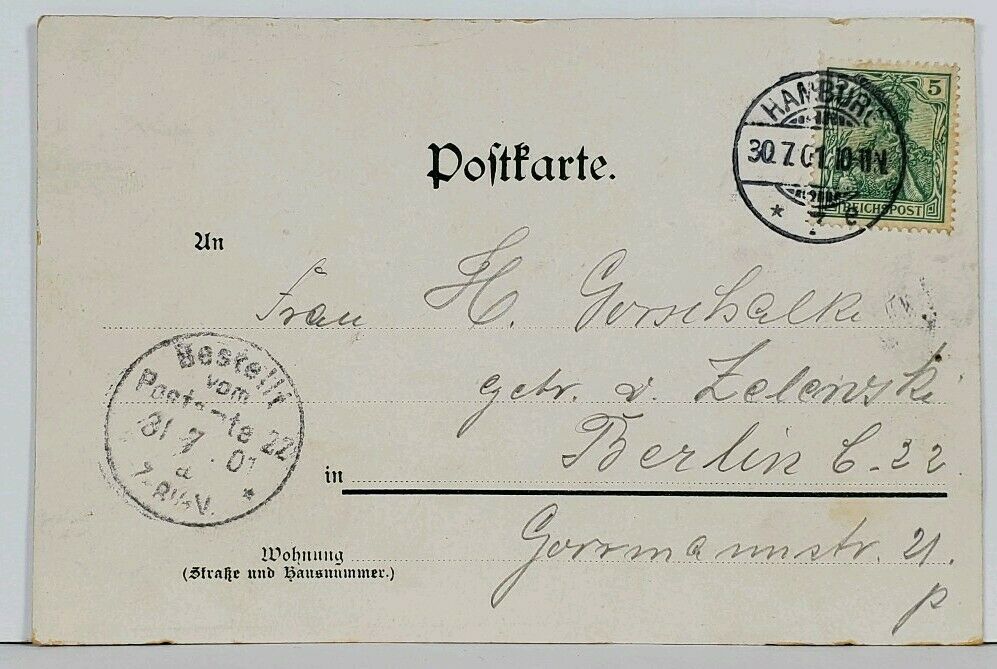 Postkarte.
5
REICHSPOST
HAMBURG
30.7.01. 10-11N
* 7 e
An
Frau H. Gorschalke
gebr. v. Zelewski
Bestellt
vom
Postamte 22
31 7 01
7-8¼V. *
in Berlin C. 22
Wohnung
(Straße und Hausnummer.)
Gormannstr. 21.
p